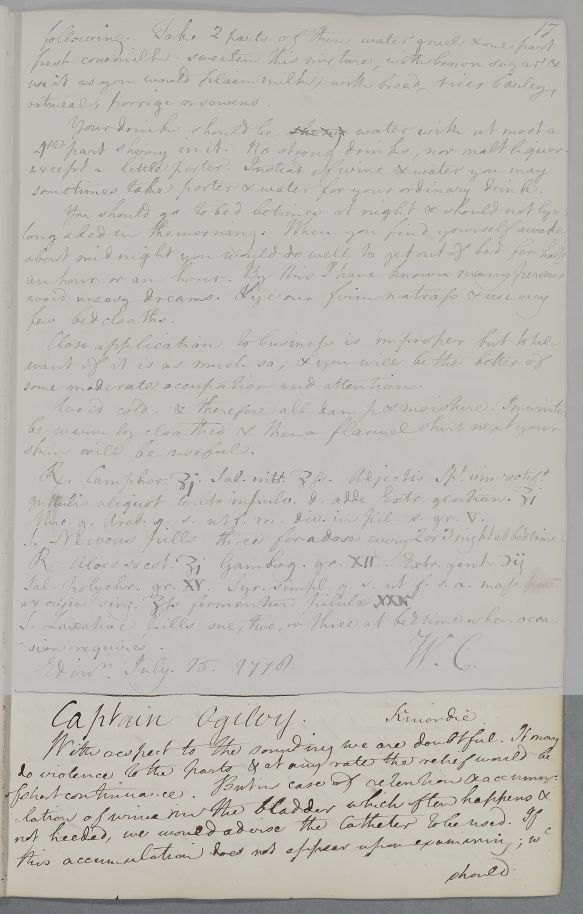 17
following. Take 2 parts of thin water gruel & one part
fresh cowmilk. sweeten this mixture, with brown sugar &
use it as you would plain milk, with bread, rice, barley,
oatmeal, porrige or sowens.
Your drink should be water with at most a
4th part sherry in it. No strong drinks, nor malt liquor
except a little porter. Instead of wine & water you may
sometimes take porter & water for your ordinary drink.
You should go to bed betimes at night & should not lye
long abed in the morning. When you find yourself awake
about midnight you would do well to get out of bed for half
an hour or an hour. By this I have known many persons
avoid uneasy dreams. Lye on a firm matrass & use very
few bedcloaths.
Close application to business is improper but total
want of it is as much so; & you will be the better of
some moderate occupation and attention.
Avoid cold. & therefore all damp & moisture. In winter
be warmly cloathed & then a flannel shirt next your
skin will be useful.
R. Camphor. ʒj. Sal. nitr. ʒſs. Adjectis Spt. vin. rectift.
guttulis aliquot tere in pulv. d. adde Extr. gentian. ʒi
Muc. g. Arab. q. s. ut f. m. div. in pil. s. gr. V.
S. Nervous pills three for a dose every 2 or 3 night at bedtime.
R Aloes socot. ʒj Gambog. gr. XII. Extr. gent. ℈ij
Sal. polychr. gr. XV. Syr. simpl. q. s. ut f. s. a. mass.
ex cujus sing. ʒſs formentur pilulæ
S. Laxative pills one, two, or three at bedtime when occa
-sion requires.
Edinr. July. 15. 1778. W. C.
Captain Ogilvy. Kinordie
With respect to the sounding we are doubtful. It may
do violence to the parts & at any rate the relief would be
of short continuance. But in case of retention & accumu-
-lation of urine in the bladder which often happens &
not heeded, we would advise the Catheter to be used. If
this accumulation does not appear upon examining; we
should